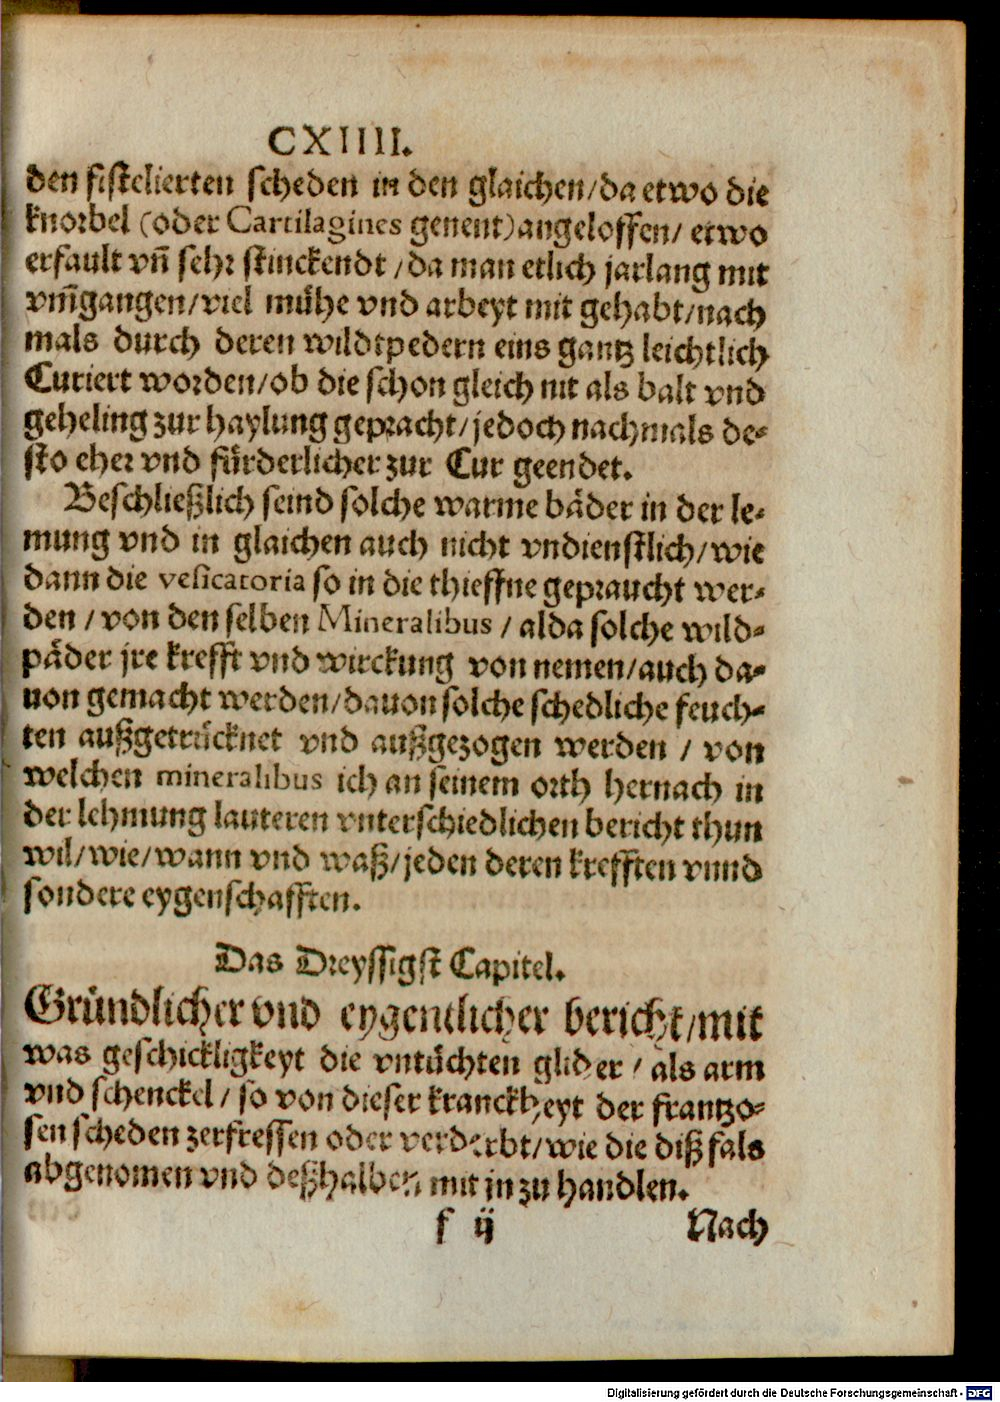 CXIIII.
den fistelierten scheden in den glaichen/da etwo die
knorbel (oder Cartilagines genent) angeloffen/ etwo
erfault vñ sehr stinckendt /da man etlich jarlang mit
vm̃gangen/viel mühe vnd arbeyt mit gehabt/nach
mals durch deren wildtpedern eins gantz leichtlich
Curiert worden/ob die schon gleich nit als balt vnd
geheling zur haylung gepracht/jedoch nachmals de-
sto eher vnd fürderlicher zur Cur geendet.
Beschließlich seind solche warme bäder in der le-
mung vnd in glaichen auch nicht vndienstlich/wie
dann die vesicatoria so in die thieffne gepraucht wer-
den /von den selben Mineralibus / alda solche wild-
päder jre krefft vnd wirckung von nemen/auch da-
uon gemacht werden/dauon solche schedliche feuch-
ten außgetrücknet vnd außgezogen werden / von
welchen mineralibus ich an seinem orth hernach in
der lehmung lauteren vnterschiedlichen bericht thun
wil/wie/wann vnd waß/jeden deren krefften vnnd
sondere eygenschafften.
Das Dreyssigst Capitel.
Gründlicher vnd eygentlicher bericht/mit
was geschickligkeyt die vntüchten glider / als arm
vnd schenckel/ so von dieser kranckheyt der frantzo-
sen scheden zerfressen oder verderbt/wie die diß fals
abgenomen vnd deßhalben mit jn zu handlen.
f ij Nach
Digitalisierung gefördert durch die Deutsche Forschungsgemeinschaft - DFG